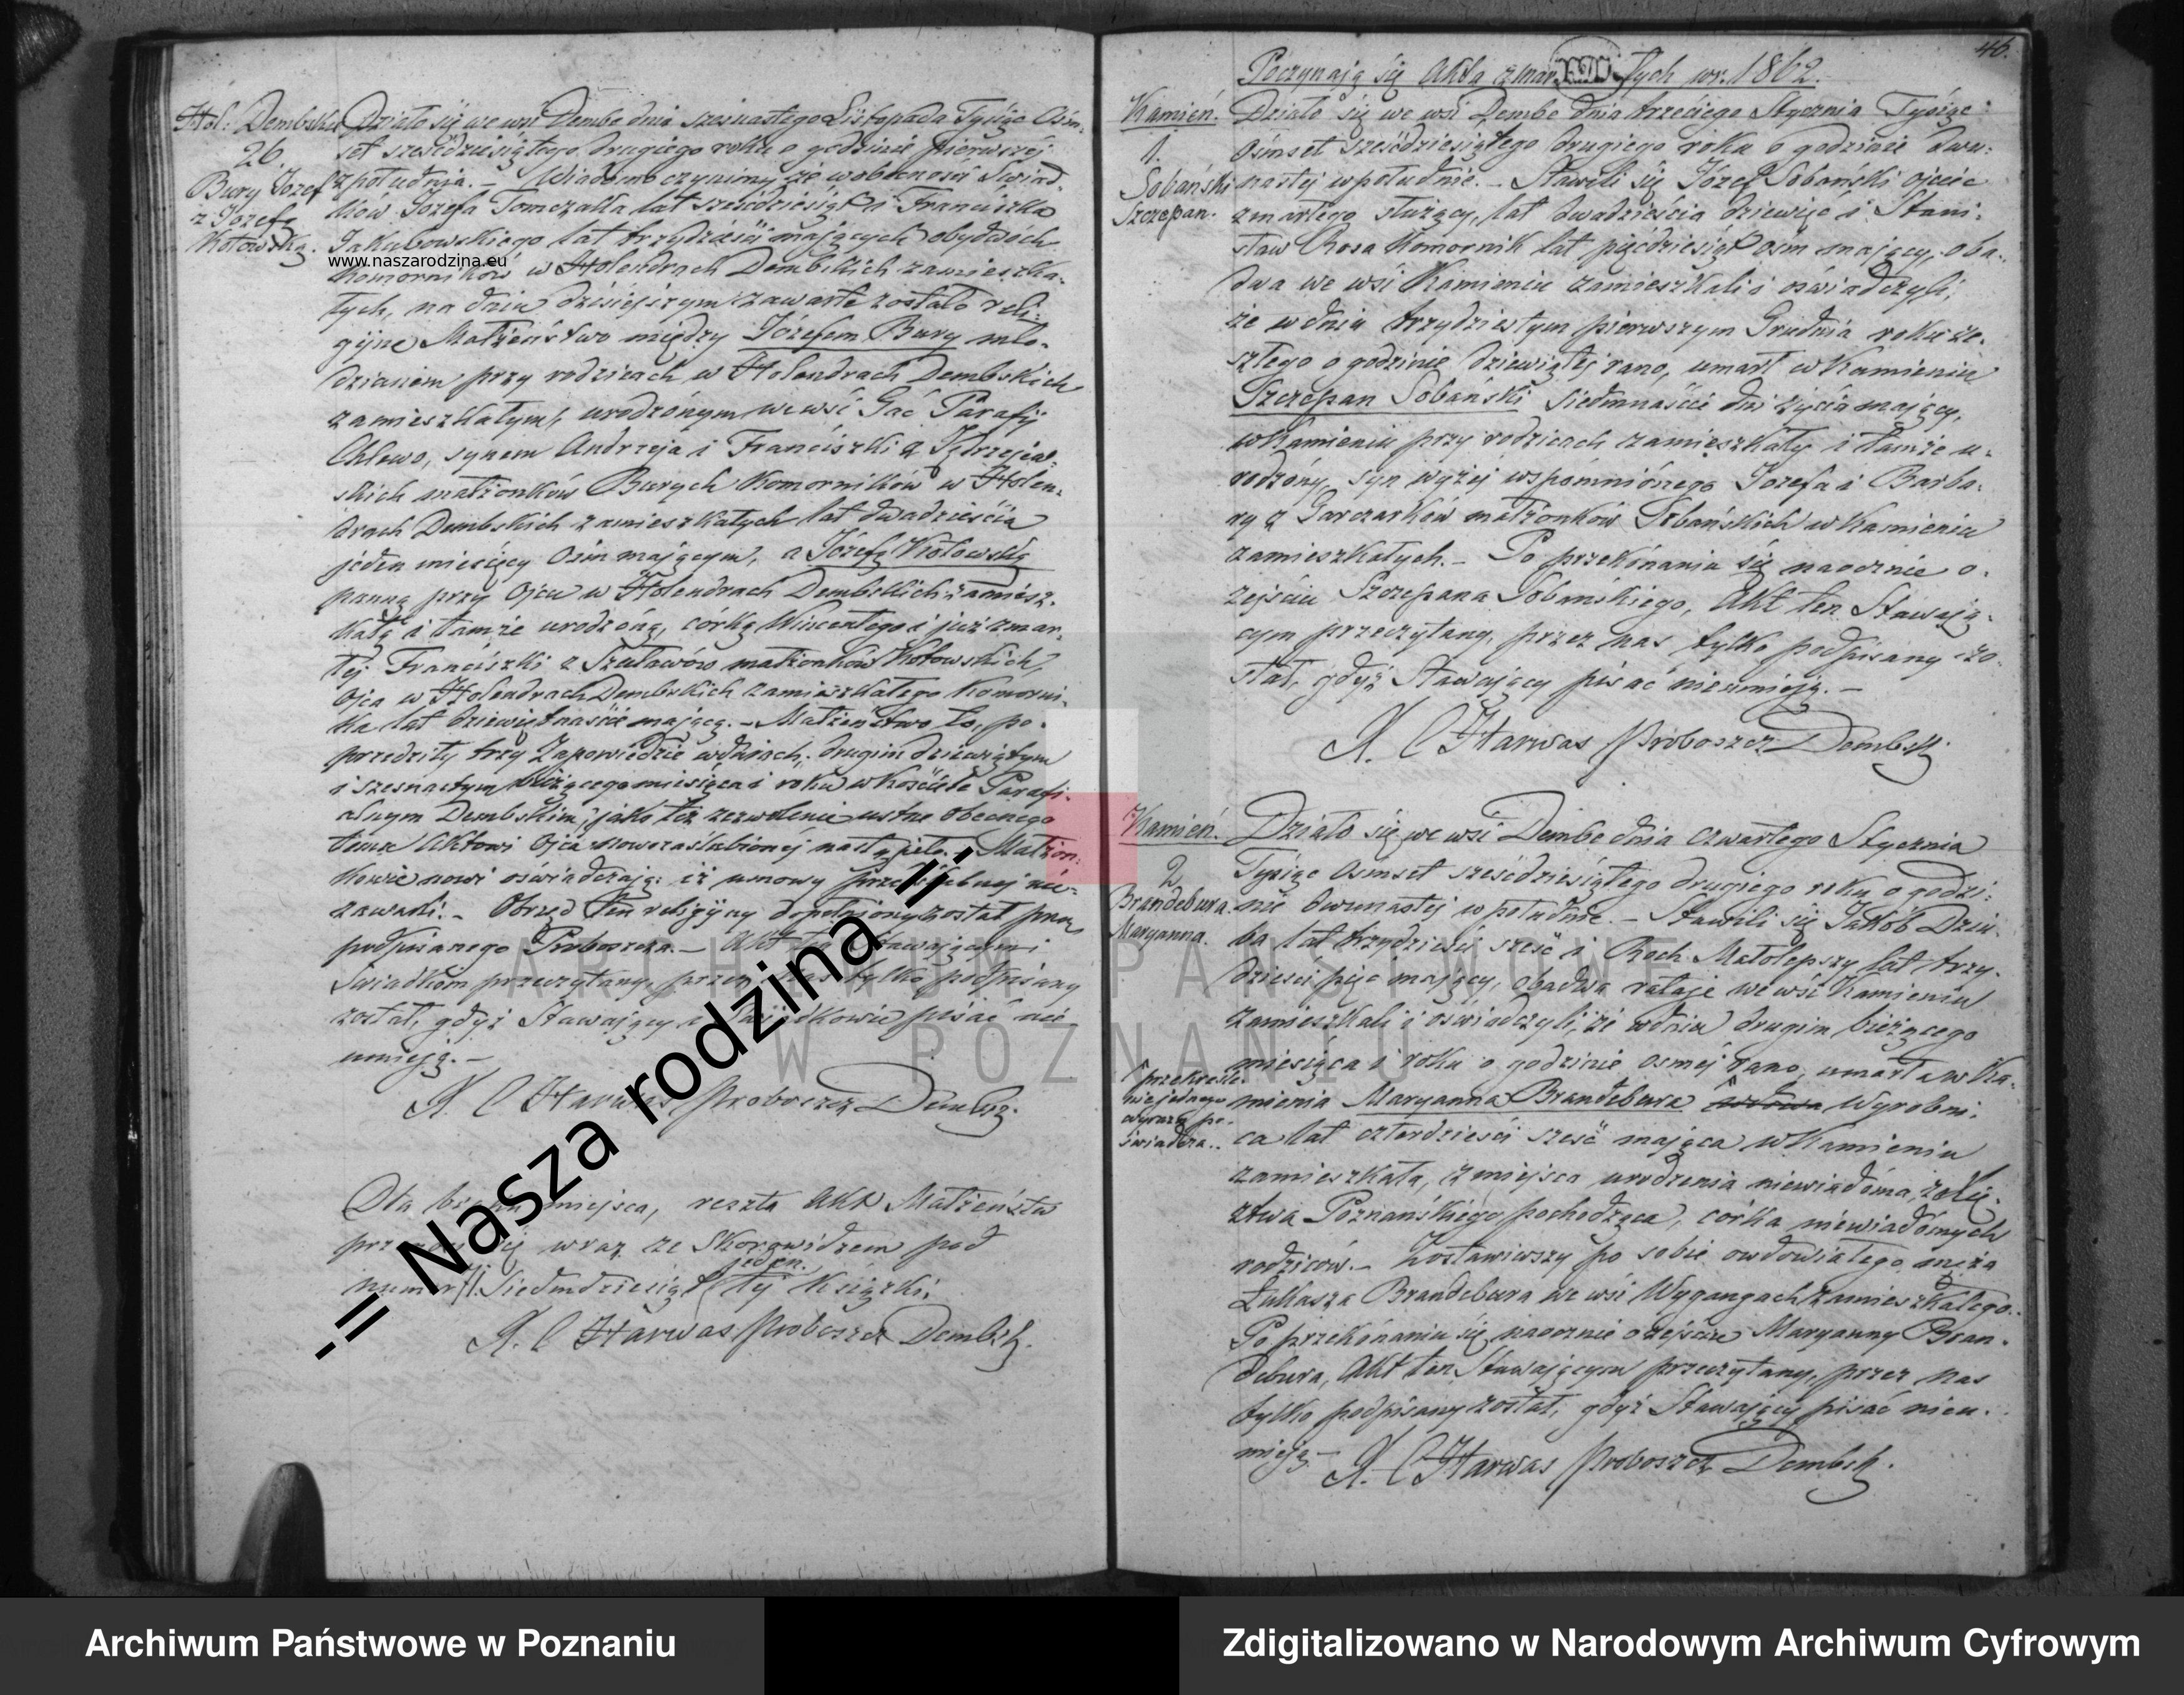 Hol: Dembskie
26.
Bury Józef
z Józefą
Kotowską.
Działo się we wsi Dembe dnia szesnastego Listopada Tysiąc Ośm-
set sześćdziesiątego drugiego roku o godzinie pierwszej
z południa. – Wiadomo czynimy że w obecności Świad-
ków Józefa Tomczaka lat sześćdziesiąt i Franciszka
Jakubowskiego lat trzydzieści mających obydwóch
www.naszarodzina.eu
Komorników w Holendrach Dembskich zamieszka-
łych, na dniu dzisiejszym zawarte zostało reli-
gijne Małżeństwo między Józefem Bury mło-
dzianem przy rodzicach w Holendrach Dembskich
zamieszkałym, urodzonym we wsi Gać Parafij
Chlewo, synem Andrzeja i Franciszki z
skich małżonków Burych Komorników w Holen-
drach Dembskich zamieszkałych lat dwadzieścia
jeden miesięcy Ośm mającym, a Józefą Kotowską
panną przy Ojcu w Holendrach Dembskich zamiesz-
kałą i tamże urodzoną, córką Wincentego i już zmar-
łej Franciszki z małżonków Kotowskich,
Ojca w Holendrach Dembskich zamieszkałego Komorni-
ka lat dziewiętnaście mającą. – Małżeństwo to, po-
przedziły trzy Zapowiedzie w dniach, drugim dziewiątym
i szesnastym bieżącego miesiąca i roku w Kościele Parafi-
alnym Dembskim, jako też zezwolenie ustne obecnego
temu Aktowi Ojca nowozaślubionej nastąpiło. – Małżon-
kowie nowi oświadczają: iż umowy przedślubnej nie
zawarli. – Obrzęd ten religijny dopełniony został przez
podpisanego Proboszcza. – Akt ten Stawającym i
Świadkom przeczytany, przez nas tylko podpisany
został, gdyż Stawający i Świadkowie pisać nie
umieją. –
X. C Harwas Proboszcz Dembsk.
Dla braku miejsca, reszta Akt Małżeństw
przenosi się wraz ze Skorowidzem pod
jeden.
numer 71. Siedmdziesiąt ty Książki.
X. C Harwas Proboszcz Dembsk.
46.
Poczynają się Akta zmarłych w r. 1862.
Kamień.
1.
Sobański
Szczepan.
Działo się we wsi Dembe dnia trzeciego Stycznia Tysiąc
Ośmset sześćdziesiątego drugiego roku o godzinie dwu-
nastej w południe. – Stawili się Józef Sobański ojciec
zmarłego służący, lat dwadzieścia dziewięć i Stani-
sław Rosa Komornik lat pięćdziesiąt ośm mający, oba-
dwa we wsi Kamieniu zamieszkali i oświadczyli,
że w dniu trzydziestym pierwszym Grudnia roku ze-
szłego o godzinie dziewiątej rano, umarł w Kamieniu
Szczepan Sobański siedmnaście dni życia mający,
w Kamieniu przy rodzicach zamieszkały i tamże u-
rodzony, syn wyżej wspomnionego Józefa i Barba-
ry z Garczarków małżonków Sobańskich w Kamieniu
zamieszkałych. – Po przekonaniu się naocznie o
zejściu Szczepana Sobańskiego, Akt ten Stawają-
cym przeczytany, przez nas tylko podpisany zo-
stał, gdyż Stawający pisać nieumieją. –
X. C Harwas Proboszcz Dembsk.
Kamień.
2
Brandebura
Maryanna.
Działo się we wsi Dembe dnia czwartego Stycznia
Tysiąc Ośmset sześćdziesiątego drugiego roku o godzi-
nie dwunastej w południe. – Stawili się Jakób Dziu-
ba lat trzydzieści sześć i Roch Małolepszy lat trzy-
dzieści pięć mający, obadwa rataje we wsi Kamieniu
zamieszkali i oświadczyli, że w dniu drugim bieżącego
miesiąca i roku o godzinie osmej rano, umarła w Ka-
mieniu Maryanna Brandebura wdowa Wyrobni-
przekreśle-
nie jednego
wyrazu po-
świadcza.
ca lat czterdzieści sześć mająca w Kamieniu
zamieszkała, z miejsca urodzenia niewiadoma, z Xię-
ztwa Poznańskiego pochodząca, córka niewiadomych
rodziców. – Zostawiwszy po sobie owdowiałego męża
Łukasza Brandebura we wsi Wygangach zamieszkałego.
Po przekonaniu się naocznie o zejściu Maryanny Bran-
debura, Akt ten Stawającym przeczytany, przez nas
tylko podpisany został, gdyż Stawający pisać nieu-
mieją –
X. C Harwas Proboszcz Dembsk.
-= Nasza rodzina =-
ARCHIWUM PAŃSTWOWE
W POZNANIU
Archiwum Państwowe w Poznaniu
Zdigitalizowano w Narodowym Archiwum Cyfrowym